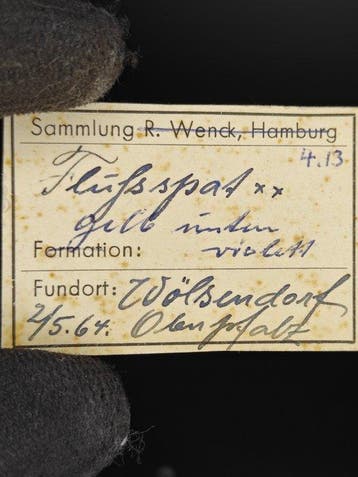 Sammlung R. Wenck, Hamburg
4.13
Flußspat xx
gelb unten
Formation: violett
Fundort: Wölsendorf
2/5.64. Oberpfalz